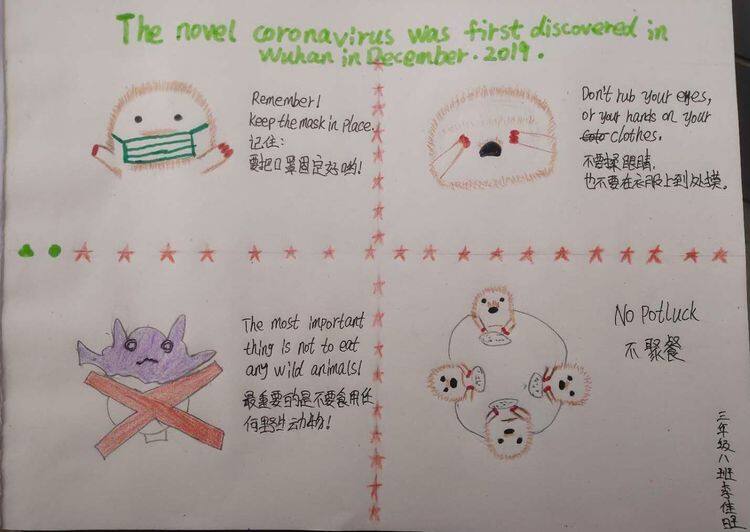 The novel coronavirus was first discovered in
Wuhan in December. 2019.
Remember!
Keep the mask in place.
记住:
要把口罩固定好哟!
Don't rub your eyes,
or your hands on your
clothes.
不要揉眼睛,
也不要在衣服上到处摸。
The most important
thing is not to eat
any wild animals!
最重要的是不要食用任
何野生动物!
No Potluck
不聚餐
三年级八班李佳